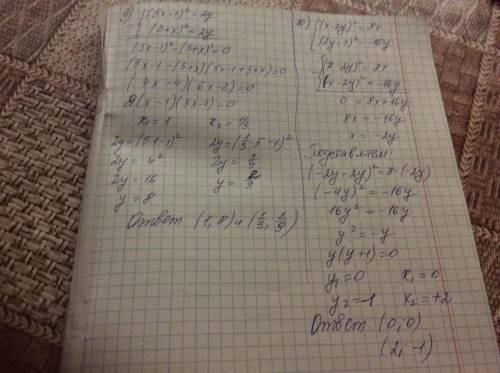 9) { (5x-1)² = 2y
- { (3+x)² = 2y
(5x-1)² - (3+x)² = 0
(5x-1-(3+x))(5x-1+3+x) = 0
(4x-4)(6x-2) = 0
8(x-1)(3x-1) = 0
x₁ = 1 x₂ = 1/3
2y = (5·1-1)² 2y = (1/3·5-1)²
2y = 4² 2y = 4/9
2y = 16 y = 2/9
y = 8
Ответ (1, 8) и (1/3; 2/9)
10) { (x-2y)² = 8x
{ (2y-x)² = -16y
- { (x-2y)² = 8x
{ (x-2y)² = -16y
0 = 8x+16y
8x = -16y
x = -2y
Подставляем:
(-2y-2y)² = 8·(-2y)
(-4y)² = -16y
16y² = -16y
y² = -y
y(y+1) = 0
y₁ = 0 x₁ = 0
y₂ = -1 x₂ = +2
Ответ (0; 0)
(2; -1)